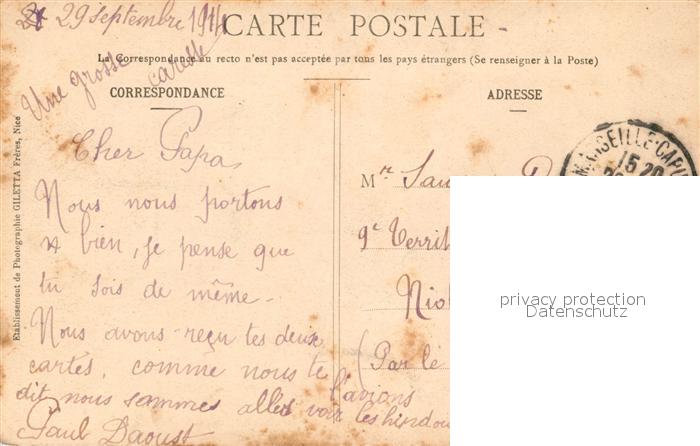 29 Septembre 1914
CARTE POSTALE
La Correspondance au recto n'est pas acceptée par tous les pays étrangers (Se renseigner à la Poste)
Une grosse caresse
CORRESPONDANCE
Cher Papa
Nous nous portons
bien, je pense que
tu sois de même -
Nous avons reçu tes deux
cartes, comme nous te l'avions
dit nous sommes allés voir les hindou
Paul Daoust
Etablissement de Photographie GILETTA Frères, Nice
ADRESSE
MARSEILLE-CAPU
15 20
Mr
9e Territ
(Par le
privacy protection
Datenschutz